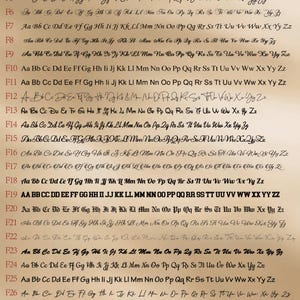 F6 Aa Bb Cc Dd Ee Ff Gg Hh Ii Jj Kk Ll Mm Nn Oo Pp Qq Rr Ss Tt Uu Vv Ww Xx Yy Zz
F7 Aa Bb Cc Dd Ee Ff Gg Hh Ii Jj Kk Ll Mm Nn Oo Pp Qq Rr Ss Tt Uu Vv Ww Xx Yy Zz
F8 Aa Bb Cc Dd Ee Ff Gg Hh Ii Jj Kk Ll Mm Nn Oo Pp Qq Rr Ss Tt Uu Vv Ww Xx Yy Zz
F9 Aa Bb Cc Dd Ee Ff Gg Hh Ii Jj Kk Ll Mm Nn Oo Pp Qq Rr Ss Tt Uu Vv Ww Xx Yy Zz
F10 Aa Bb Cc Dd Ee Ff Gg Hh Ii Jj Kk Ll Mm Nn Oo Pp Qq Rr Ss Tt Uu Vv Ww Xx Yy Zz
F11 Aa Bb Cc Dd Ee Ff Gg Hh Ii Jj Kk Ll Mm Nn Oo Pp Qq Rr Ss Tt Uu Vv Ww Xx Yy Zz
F12
F13 Aa Bb Cc Dd Ee Ff Gg Hh Ii Jj Kk Ll Mm Nn Oo Pp Qq Rr Ss Tt Uu Vv Ww Xx Yy Zz
F14 Aa Bb Cc Dd Ee Ff Gg Hh Ii Jj Kk Ll Mm Nn Oo Pp Qq Rr Ss Tt Uu Vv Ww Xx Yy Zz
F15 Aa Bb Cc Dd Ee Ff Gg Hh Ii Jj Kk Ll Mm Nn Oo Pp Qq Rr Ss Tt Uu Vv Ww Xx Yy Zz
F16 Aa Bb Cc Dd Ee Ff Gg Hh Ii Jj Kk Ll Mm Nn Oo Pp Qq Rr Ss Tt Uu Vv Ww Xx Yy Zz
F17 Aa Bb Cc Dd Ee Ff Gg Hh Ii Jj Kk Ll Mm Nn Oo Pp Qq Rr Ss Tt Uu Vv Ww Xx Yy Zz
F18 Aa Bb Cc Dd Ee Ff Gg Hh Ii Jj Kk Ll Mm Nn Oo Pp Qq Rr Ss Tt Uu Vv Ww Xx Yy Zz
F19 AA BB CC DD EE FF GG HH II JJ KK LL MM NN OO PP QQ RR SS TT UU VV WW XX YY ZZ
F20 Aa Bb Cc Dd Ee Ff Gg Hh Ii Jj Kk Ll Mm Nn Oo Pp Qq Rr Ss Tt Uu Vv Ww Xx Yy Zz
F21 Aa Bb Cc Dd Ee Ff Gg Hh Ii Jj Kk Ll Mm Nn Oo Pp Qq Rr Ss Tt Uu Vv Ww Xx Yy Zz
F22 Aa Bb Cc Dd Ee Ff Gg Hh Ii Jj Kk Ll Mm Nn Oo Pp Qq Rr Ss Tt Uu Vv Ww Xx Yy Zz
F23 Aa Bb Cc Dd Ee Ff Gg Hh Ii Jj Kk Ll Mm Nn Oo Pp Qq Rr Ss Tt Uu Vv Ww Xx Yy Zz
F24 Aa Bb Cc Dd Ee Ff Gg Hh Ii Jj Kk Ll Mm Nn Oo Pp Qq Rr Ss Tt Uu Vv Ww Xx Yy Zz
F25 Aa Bb Cc Dd Ee Ff Gg Hh Ii Jj Kk Ll Mm Nn Oo Pp Qq Rr Ss Tt Uu Vv Ww Xx Yy Zz
F26 Aa Bb Cc Dd Ee Ff Gg Hh Ii Jj Kk Ll Mm Nn Oo Pp Qq Rr Ss Tt Uu Vv Ww Xx Yy Zz